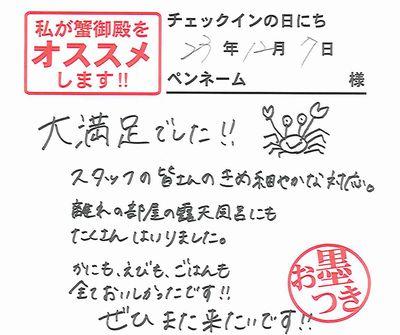 私が蟹御殿を
オススメ
します!!
チェックインの日にち
23年12月7日
ペンネーム 様
大満足でした!!
スタッフの皆さんのきめ細やかな対応。
離れの部屋の露天風呂にも
たくさんはいりました。
かにも、えびも、ごはんも
全ておいしかったです!!
ぜひまた来たいです!!
お墨つき